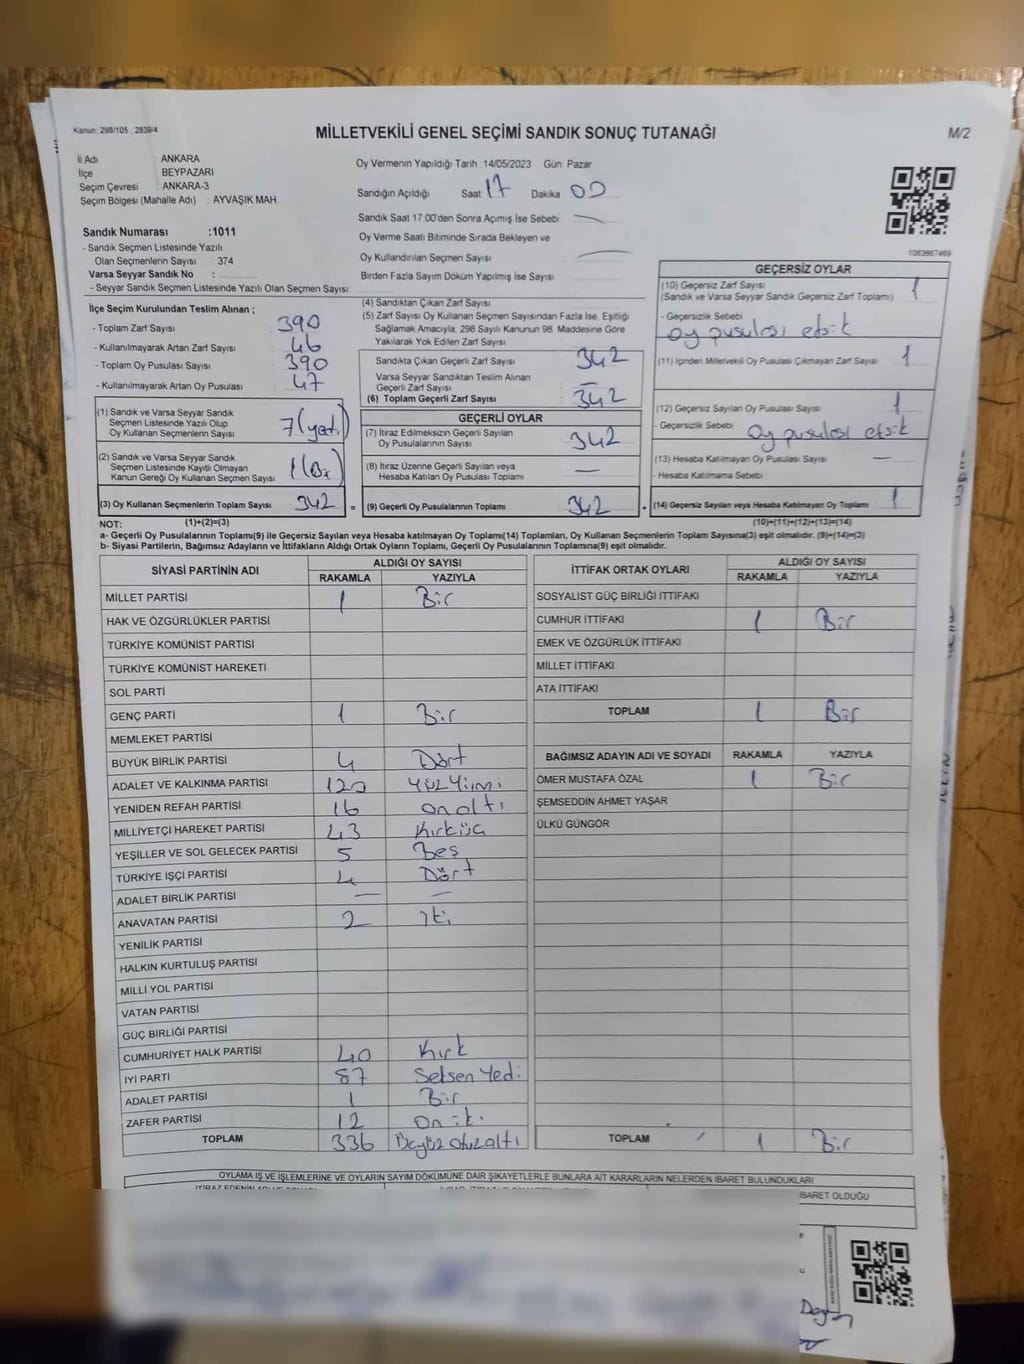 Kanun: 298/105 , 2839/4
MİLLETVEKİLİ GENEL SEÇİMİ SANDIK SONUÇ TUTANAĞI
M/2
İl Adı ANKARA
İlçe BEYPAZARI
Seçim Çevresi ANKARA-3
Seçim Bölgesi (Mahalle Adı) : AYVAŞIK MAH.
Oy Vermenin Yapıldığı Tarih 14/05/2023 Gün: Pazar
Sandığın Açıldığı Saat 17 Dakika 00
Sandık Saat 17:00'den Sonra Açımış İse Sebebi —
Oy Verme Saati Bitiminde Sırada Bekleyen ve
Oy Kullandırılan Seçmen Sayısı —
Birden Fazla Sayım Döküm Yapılmış İse Sayısı
Sandık Numarası :1011
- Sandık Seçmen Listesinde Yazılı
Olan Seçmenlerin Sayısı : 374
Varsa Seyyar Sandık No :
- Seyyar Sandık Seçmen Listesinde Yazılı Olan Seçmen Sayısı:
1083867469
İlçe Seçim Kurulundan Teslim Alınan ;
- Toplam Zarf Sayısı 390
- Kullanılmayarak Artan Zarf Sayısı 46
- Toplam Oy Pusulası Sayısı 390
- Kullanılmayarak Artan Oy Pusulası 47
(1) Sandık ve Varsa Seyyar Sandık
Seçmen Listesinde Yazılı Olup
Oy Kullanan Seçmenlerin Sayısı
(2) Sandık ve Varsa Seyyar Sandık
Seçmen Listesinde Kayıtlı Olmayan
Kanun Gereği Oy Kullanan Seçmen Sayısı
(3) Oy Kullanan Seçmenlerin Toplam Sayısı 342 =
(1)+(2)=(3)
(4) Sandıktan Çıkan Zarf Sayısı
(5) Zarf Sayısı Oy Kullanan Seçmen Sayısından Fazla İse, Eşitliği
Sağlamak Amacıyla; 298 Sayılı Kanunun 98. Maddesine Göre
Yakılarak Yok Edilen Zarf Sayısı
Sandıkta Çıkan Geçerli Zarf Sayısı 342
Varsa Seyyar Sandıktan Teslim Alınan
Geçerli Zarf Sayısı —
(6) Toplam Geçerli Zarf Sayısı 342
GEÇERLİ OYLAR
(7) İtiraz Edilmeksizin Geçerli Sayılan
Oy Pusulalarının Sayısı 342
(8) İtiraz Üzerine Geçerli Sayılan veya
Hesaba Katılan Oy Pusulası Toplamı —
(9) Geçerli Oy Pusulalarının Toplamı 342 +
GEÇERSİZ OYLAR
(10) Geçersiz Zarf Sayısı 1
(Sandık ve Varsa Seyyar Sandık Geçersiz Zarf Toplamı)
- Geçersizlik Sebebi
oy pusulası eksik
(11) İçinden Milletvekili Oy Pusulası Çıkmayan Zarf Sayısı 1
(12) Geçersiz Sayılan Oy Pusulası Sayısı 1
- Geçersizlik Sebebi oy pusulası eksik
(13) Hesaba Katılmayan Oy Pusulası Sayısı —
- Hesaba Katılmama Sebebi
(14) Geçersiz Sayılan veya Hesaba Katılmayan Oy Toplamı 1
(10)+(11)+(12)+(13)=(14)
NOT:
a- Geçerli Oy Pusulalarının Toplamı(9) ile Geçersiz Sayılan veya Hesaba katılmayan Oy Toplamı(14) Toplamları, Oy Kullanan Seçmenlerin Toplam Sayısına(3) eşit olmalıdır. (9)+(14)=(3)
b- Siyasi Partilerin, Bağımsız Adayların ve İttifakların Aldığı Ortak Oyların Toplamı, Geçerli Oy Pusulalarının Toplamına(9) eşit olmalıdır.
SİYASİ PARTİNİN ADI ALDIĞI OY SAYISI
RAKAMLA YAZIYLA
MİLLET PARTİSİ 1 Bir
HAK VE ÖZGÜRLÜKLER PARTİSİ
TÜRKİYE KOMÜNİST PARTİSİ
TÜRKİYE KOMÜNİST HAREKETİ
SOL PARTİ
GENÇ PARTİ 1 Bir
MEMLEKET PARTİSİ
BÜYÜK BİRLİK PARTİSİ 4 Dört
ADALET VE KALKINMA PARTİSİ 120 Yüz Yirmi
YENİDEN REFAH PARTİSİ 16 on altı
MİLLİYETÇİ HAREKET PARTİSİ 43 Kırküç
YEŞİLLER VE SOL GELECEK PARTİSİ 5 Beş
TÜRKİYE İŞÇİ PARTİSİ 4 Dört
ADALET BİRLİK PARTİSİ — —
ANAVATAN PARTİSİ 2 iki
YENİLİK PARTİSİ
HALKIN KURTULUŞ PARTİSİ
MİLLİ YOL PARTİSİ
VATAN PARTİSİ
GÜÇ BİRLİĞİ PARTİSİ
CUMHURİYET HALK PARTİSİ 40 Kırk
İYİ PARTİ 87 Seksen Yedi
ADALET PARTİSİ 1 Bir
ZAFER PARTİSİ 12 On iki
TOPLAM 336 Üçyüz otuz altı
İTTİFAK ORTAK OYLARI ALDIĞI OY SAYISI
RAKAMLA YAZIYLA
SOSYALİST GÜÇ BİRLİĞİ İTTİFAKI
CUMHUR İTTİFAKI 1 Bir
EMEK VE ÖZGÜRLÜK İTTİFAKI
MİLLET İTTİFAKI
ATA İTTİFAKI
TOPLAM 1 Bir
BAĞIMSIZ ADAYIN ADI VE SOYADI RAKAMLA YAZIYLA
ÖMER MUSTAFA ÖZAL 1 Bir
ŞEMSEDDİN AHMET YAŞAR
ÜLKÜ GÜNGÖR
TOPLAM 1 Bir
OYLAMA İŞ VE İŞLEMLERİNE VE OYLARIN SAYIM DÖKÜMÜNE DAİR ŞİKAYETLERLE BUNLARA AİT KARARLARIN NELERDEN İBARET BULUNDUKLARI
İBARET OLDUĞU